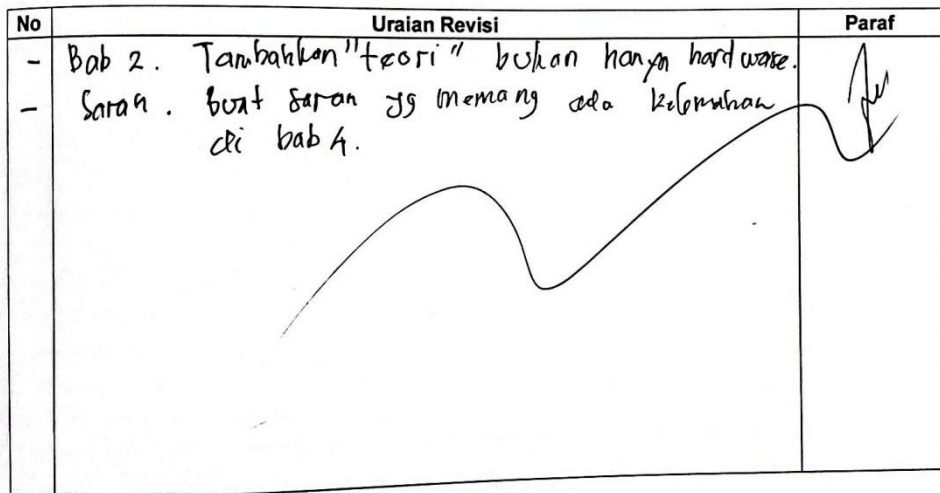 No Uraian Revisi Paraf
- Bab 2. Tambahkan "teori" bukan hanya hardware.
- Saran. buat saran yg memang ada kelemahan
di bab 4.